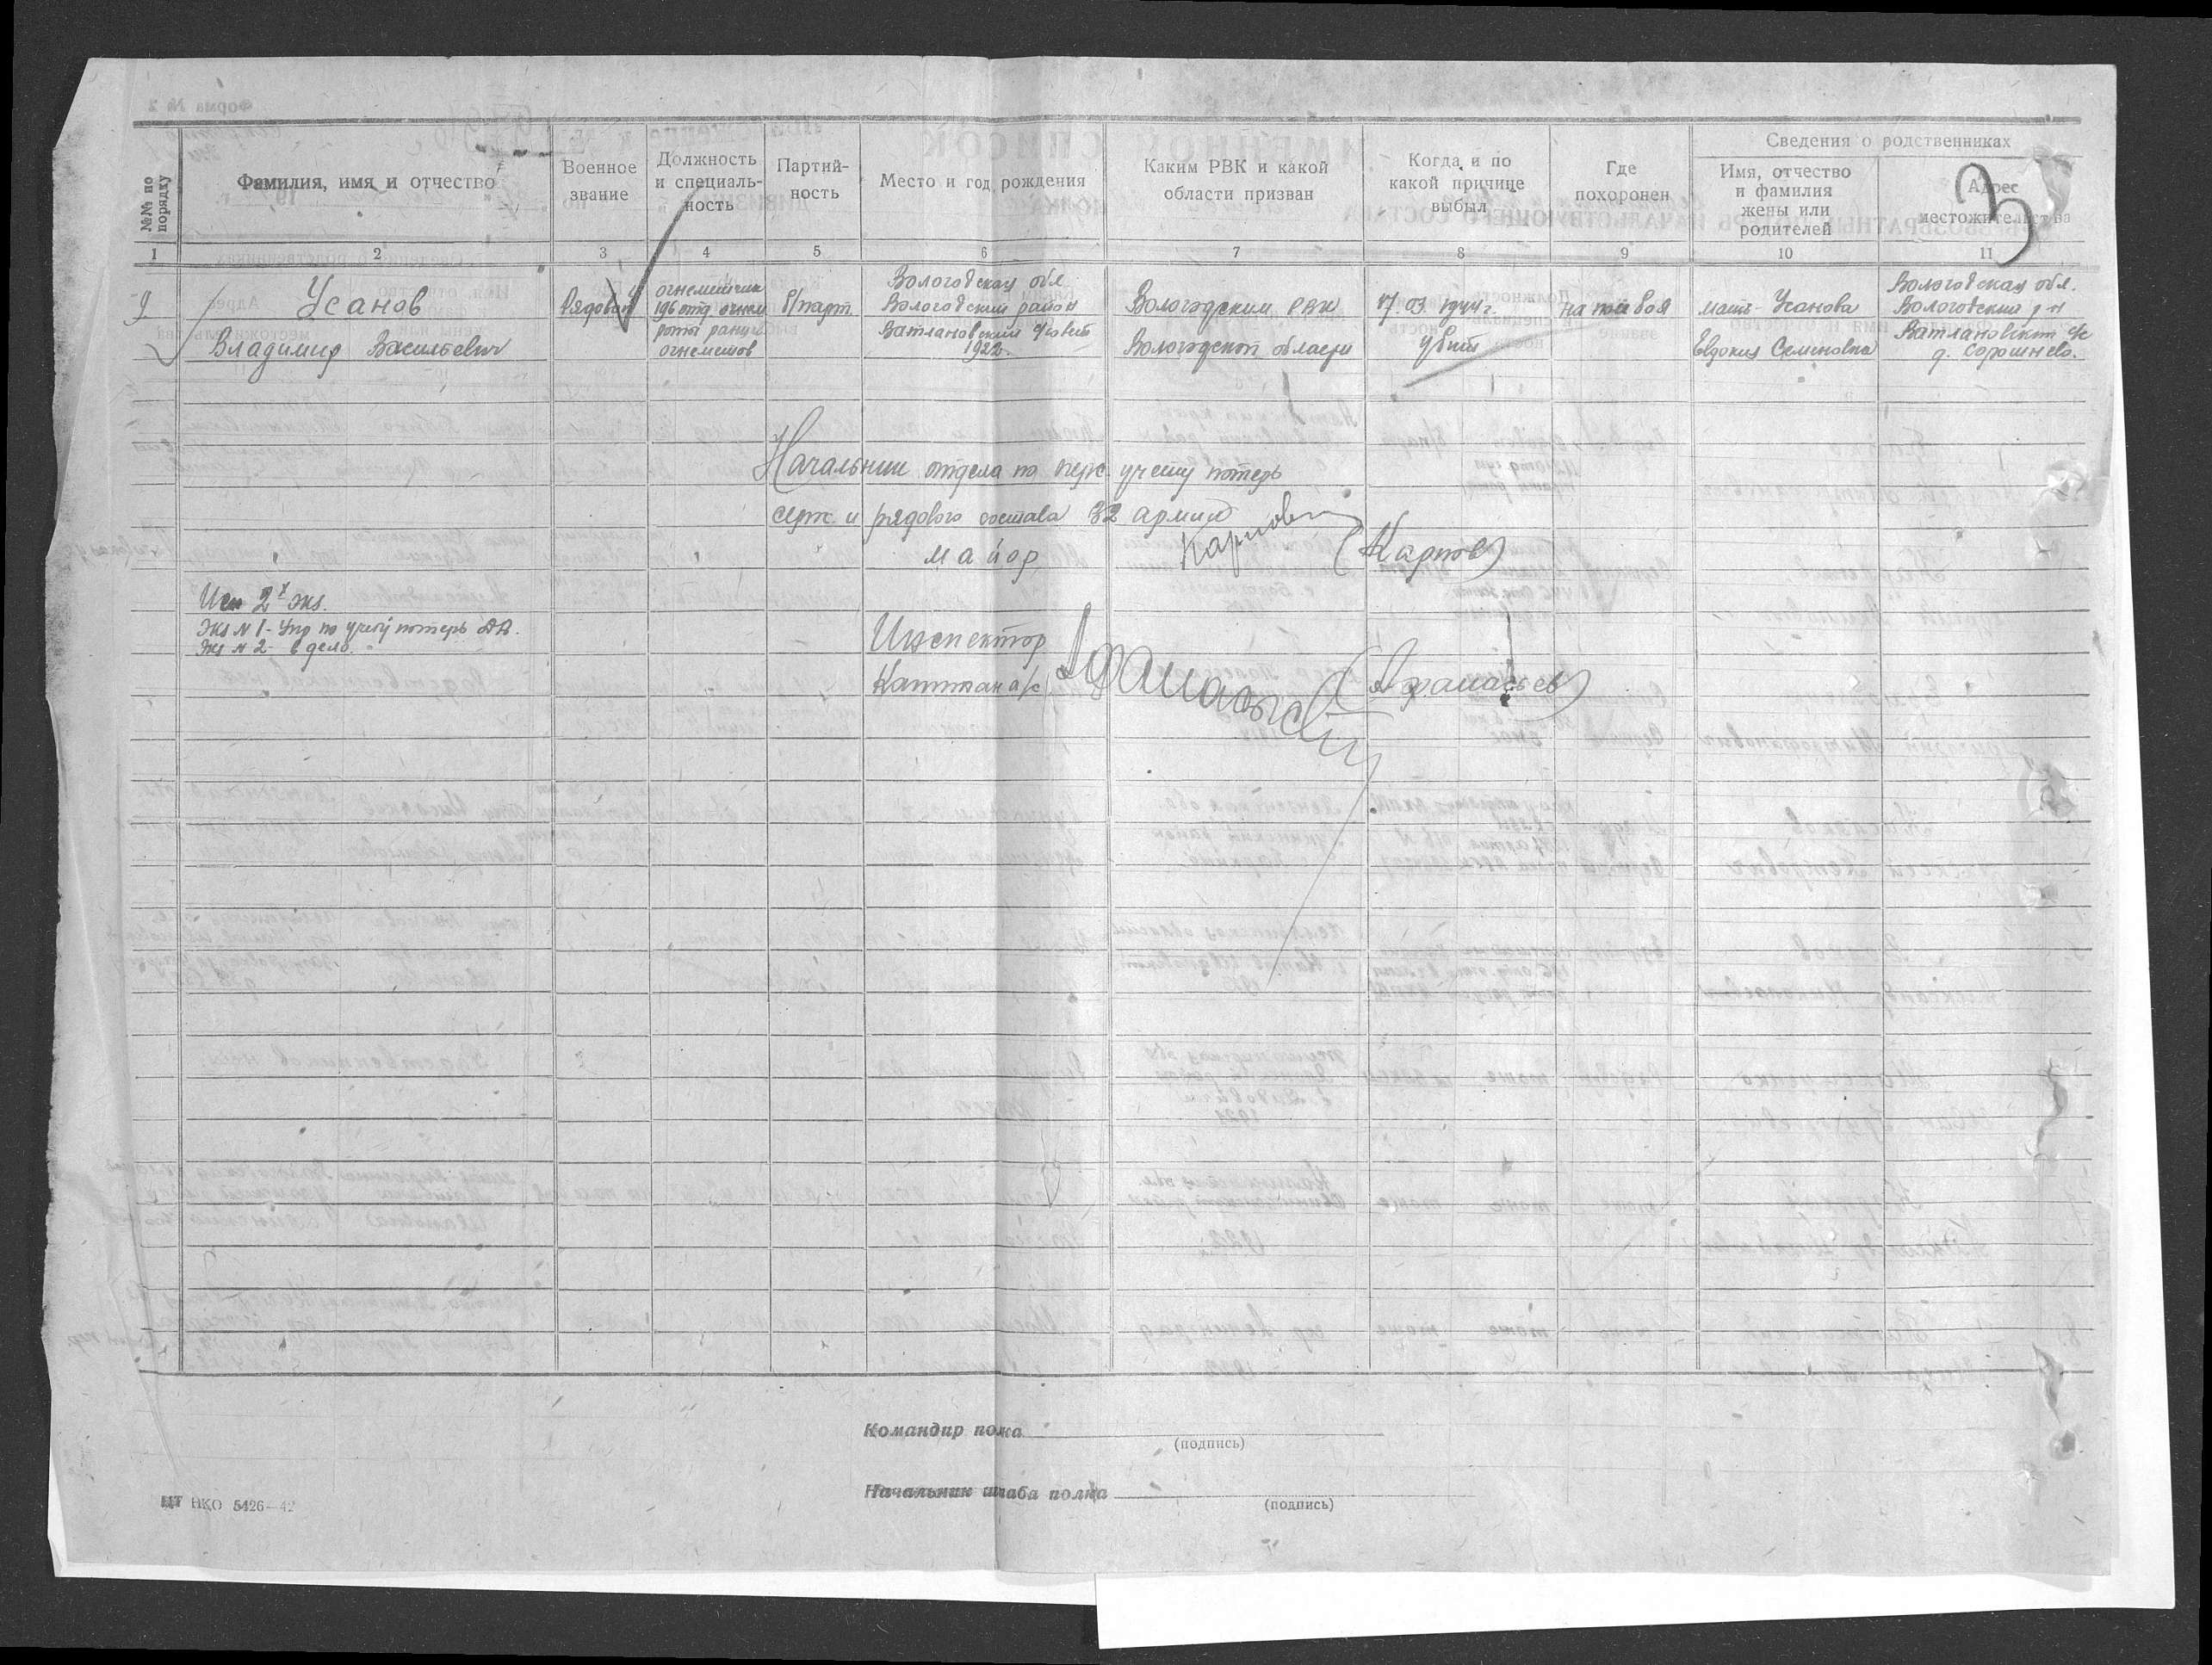 3
№№ по порядку
Фамилия, имя и отчество
Военное звание
Должность и специаль-ность
Партий-ность
Место и год рождения
Каким РВК и какой области призван
Когда и по какой причине выбыл
Где похоронен
Сведения о родственниках
Имя, отчество и фамилия жены или родителей
Адрес местожительства
1 2 3 4 5 6 7 8 9 10 11
9
Усанов
Владимир Васильевич
Рядовой
огнеметчик
196 отд. огнем
роты ранц.
огнеметов
б/парт.
Вологодская обл.
Вологодский район
Ватлановский с/совет
1922.
Вологодским РВК
Вологодской области
17.03.1944г.
убит
на поле боя
мать - Усанова
Евдокия Семеновна
Вологодская обл.
Вологодский р-н
Ватлановский с/с
д. Сорошнево.
Начальник отдела по перс. учету потерь
серж. и рядового состава 32 армии
майор Карпов (Карпов)
Исп 2х экз.
Экз N 1 - Упр по учету потерь ДА.
Экз N 2 - в дело.
Инспектор
Капитан а/с Афанасьев (Афанасьев)
Командир полка
(подпись)
Начальник штаба полка
(подпись)
ЦТ НКО 5426—42